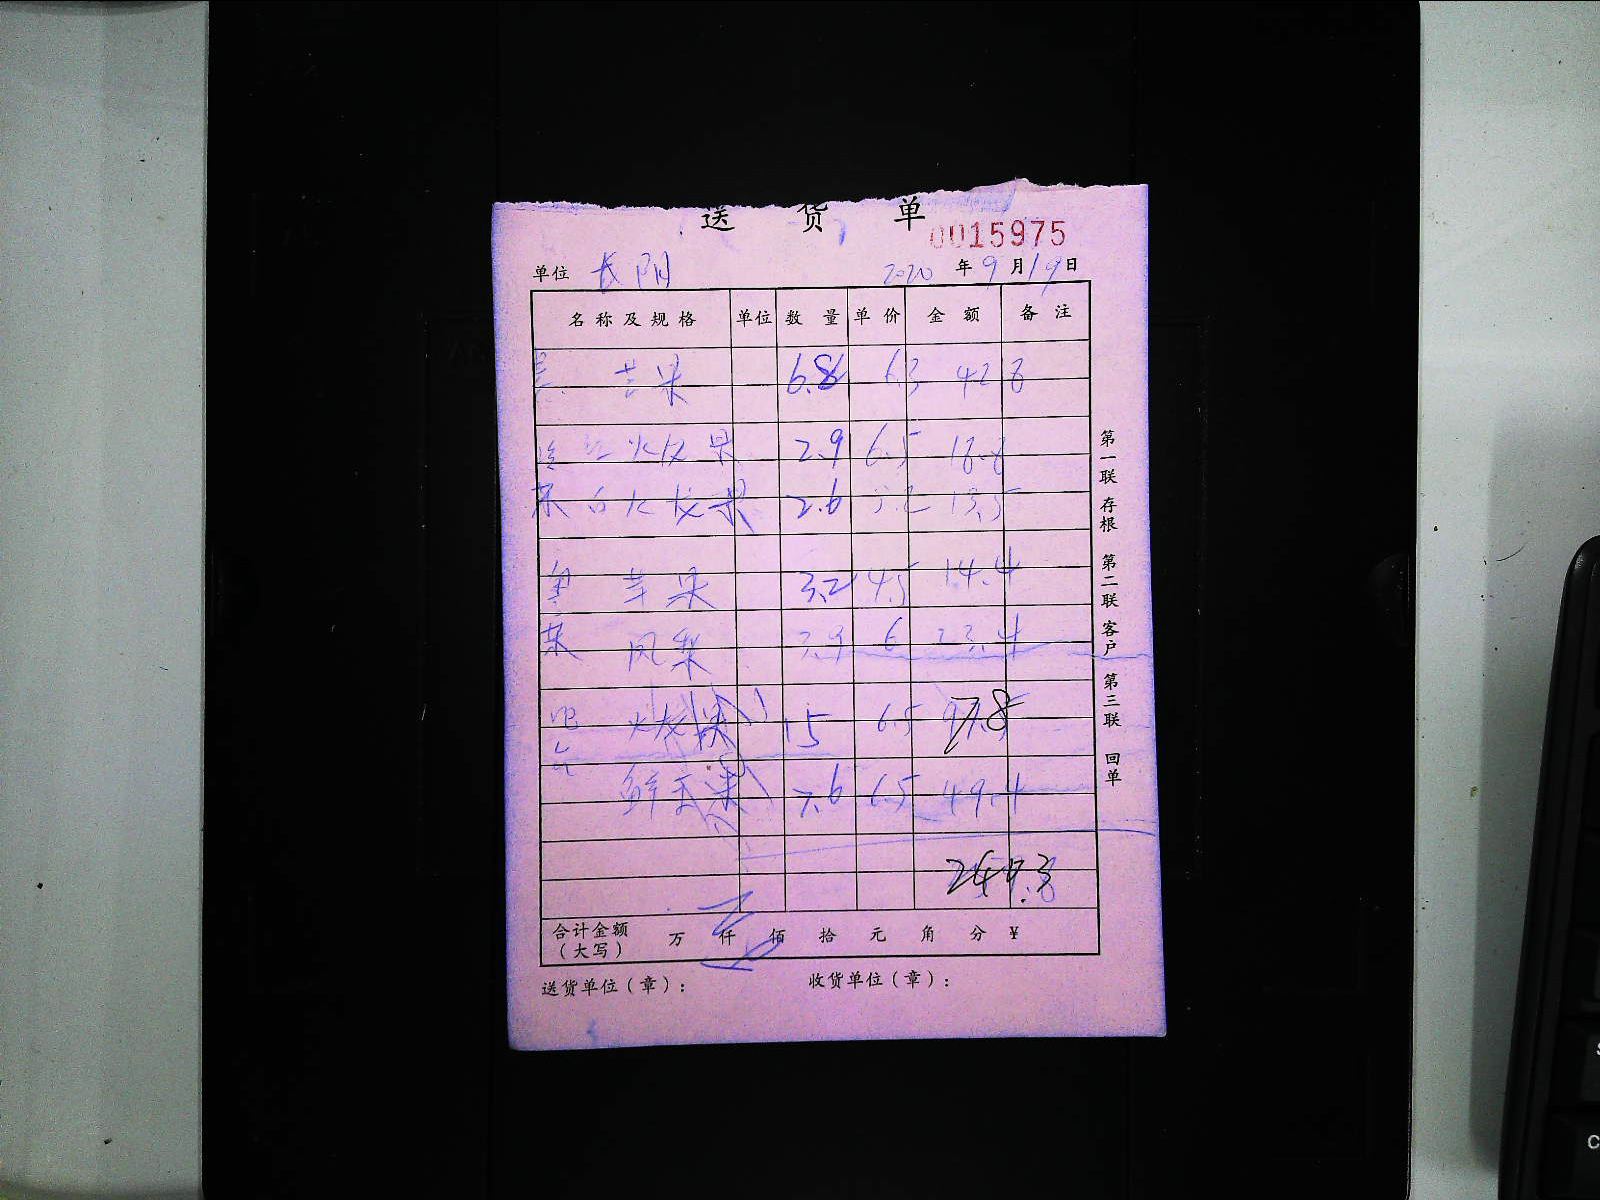 送 货 单
0015975
单位 长阳 2020 年 9 月 19 日
名称及规格 单位 数量 单价 金额 备注
苹果 6.8 6.3 42.8
红火龙果 2.9 6.5 18.8
白火龙果 2.6 5.2 13.5
苹果 3.2 4.5 14.4
风梨 3.9 6 23.4
吧 火龙果 15 6.5 97.8
台 鲜玉米 7.6 6.5 49.4
合计金额（大写） 万 仟 佰 拾 元 角 分 ¥
送货单位（章）： 收货单位（章）：
第一联 存根 第二联 客户 第三联 回单